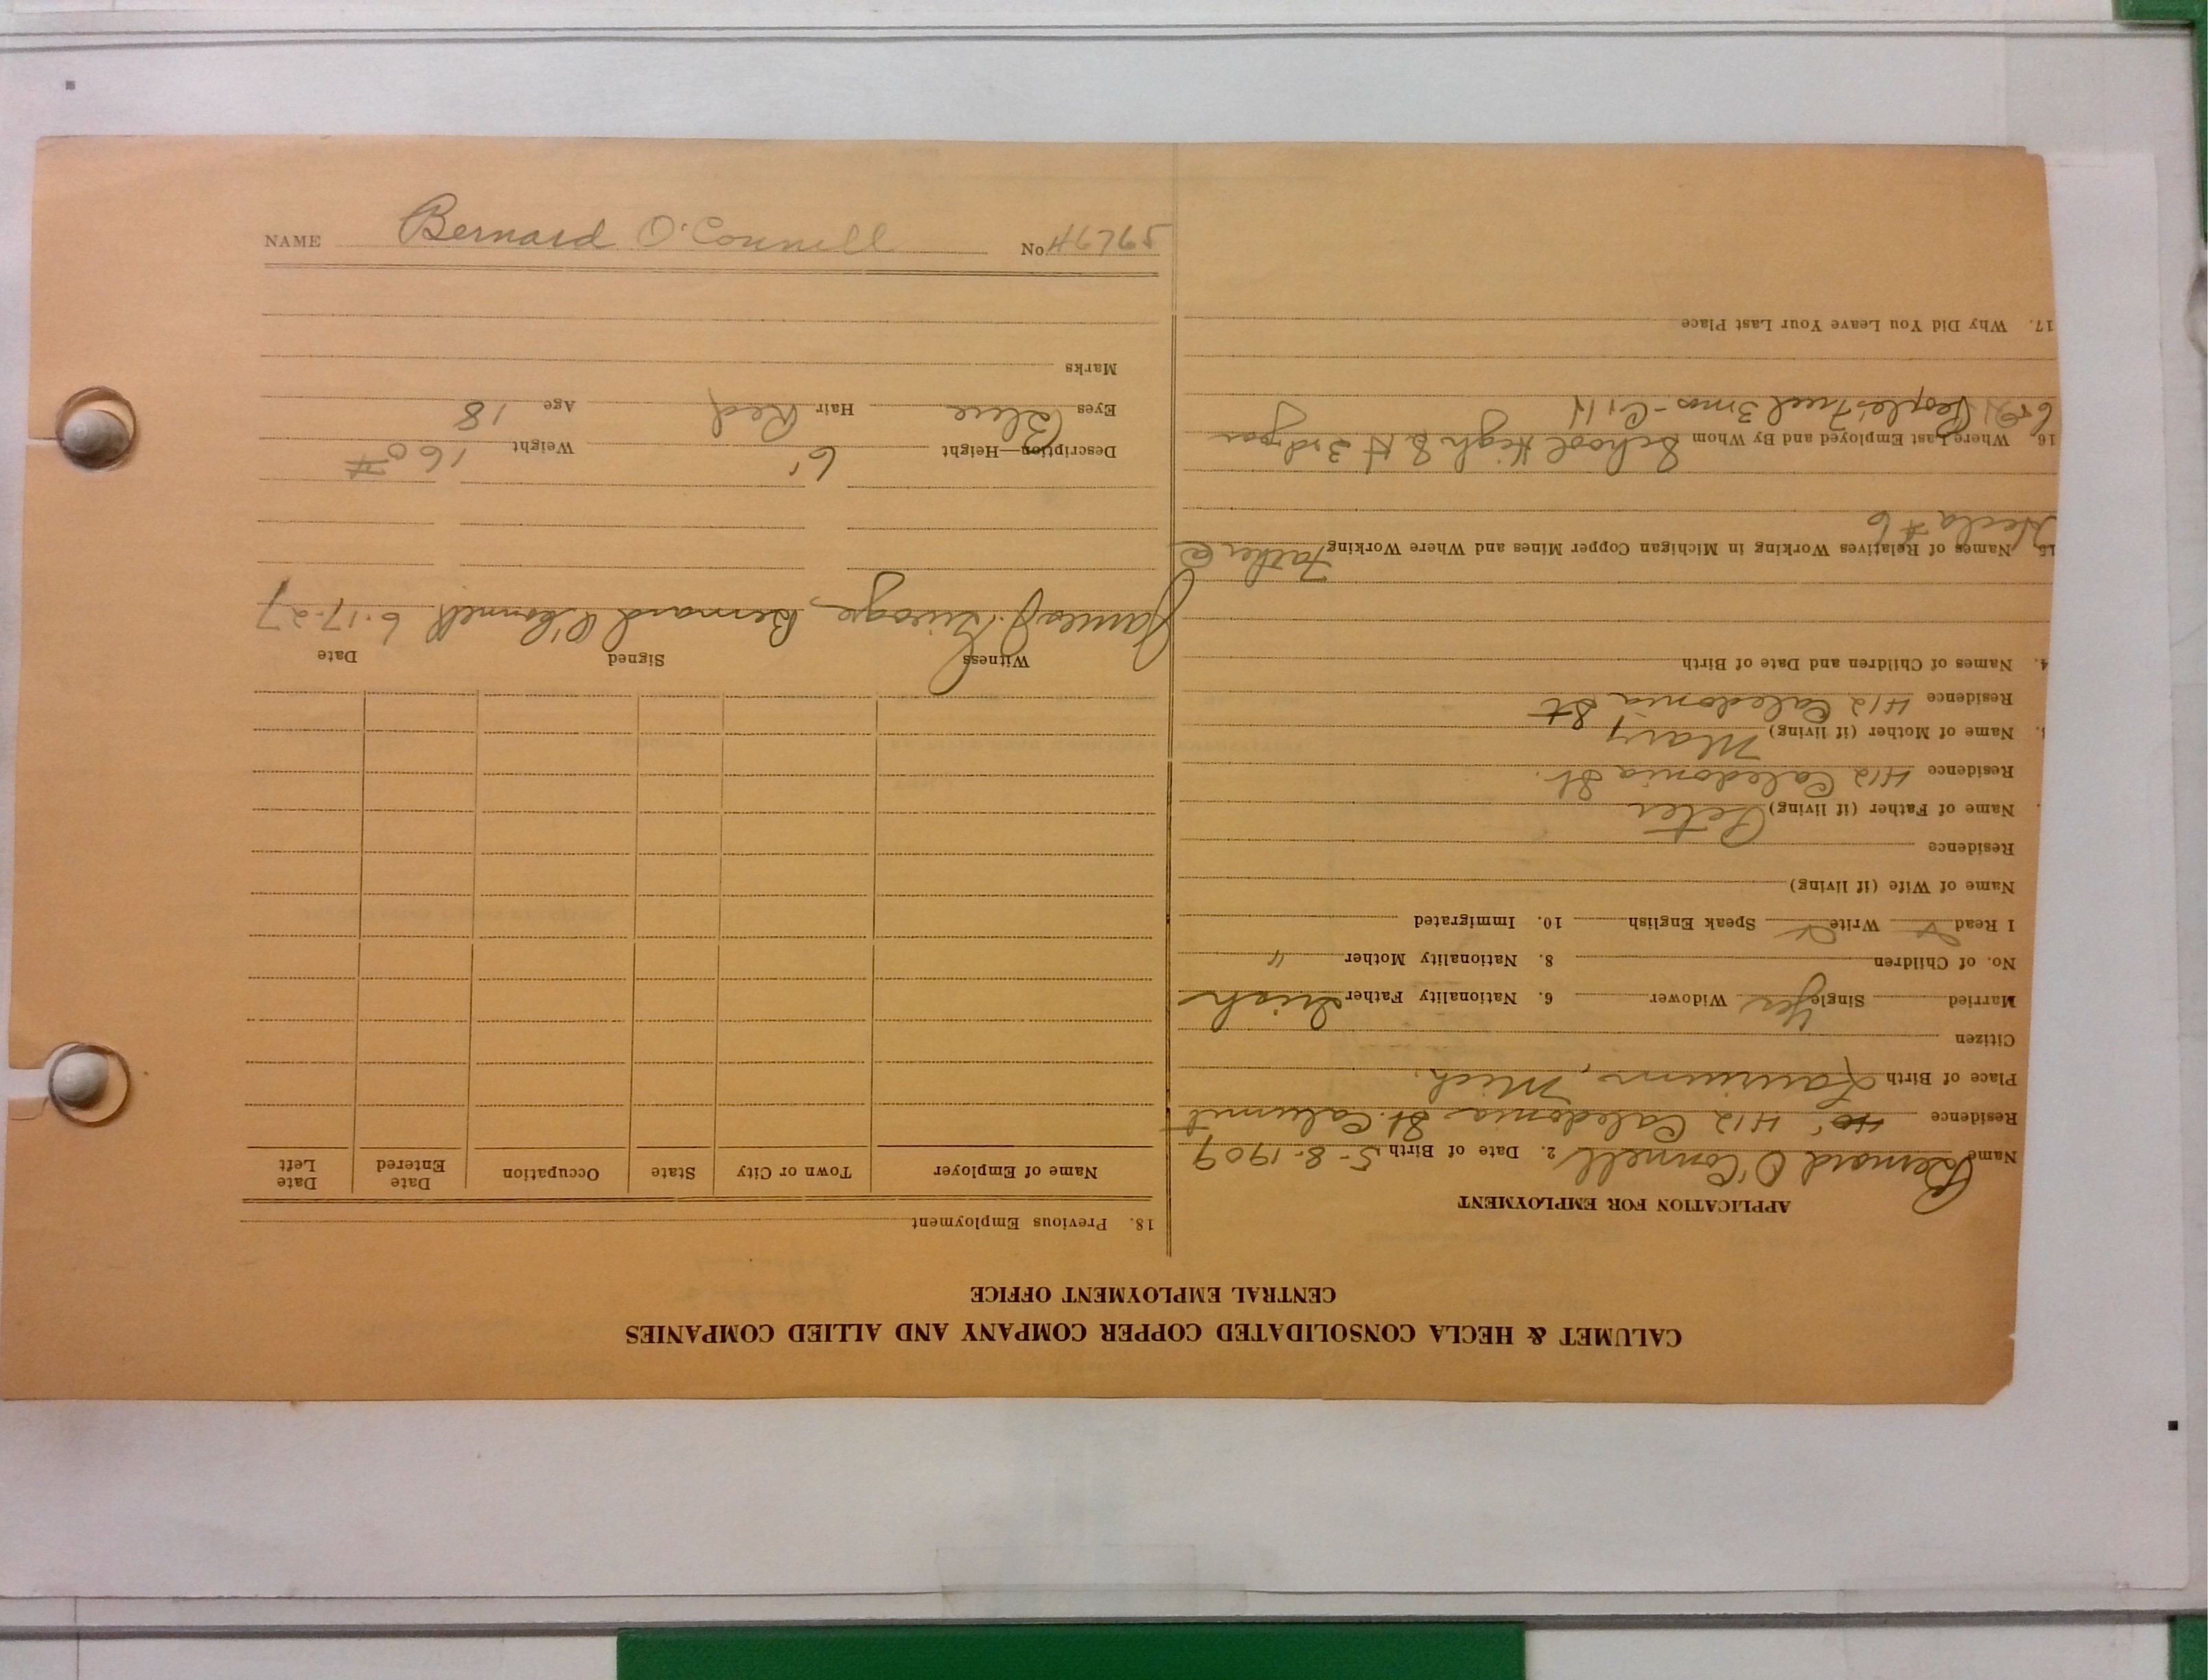 NAME Bernard O'Connell No. 46765
CALUMET & HECLA CONSOLIDATED COPPER COMPANY AND ALLIED COMPANIES
CENTRAL EMPLOYMENT OFFICE
APPLICATION FOR EMPLOYMENT
Name Bernard O'Connell 2. Date of Birth 5-8-1909
Residence 412 Caledonia St. Calumet
Place of Birth Laurium, Mich.
Citizen
Married Single Yes Widower 6. Nationality Father Irish
No. of Children 8. Nationality Mother "
I Read Write Speak English 10. Immigrated
Name of Wife (if living)
Residence
Name of Father (if living) Peter
Residence 412 Caledonia St.
Name of Mother (if living) Mary
Residence 412 Caledonia St
4. Names of Children and Date of Birth
15. Names of Relatives Working in Michigan Copper Mines and Where Working Father @
Hecla #6
16. Where Last Employed and By Whom School High 3rd year
Peoples Fuel 3 mos -
17. Why Did You Leave Your Last Place
18. Previous Employment
Name of Employer Town or City State Occupation Date Entered Date Left
Witness Signed Date
James J. Bernard O'Connell 6-17-27
Description—Height 6' Weight 160#
Eyes Blue Hair Red Age 18
Marks